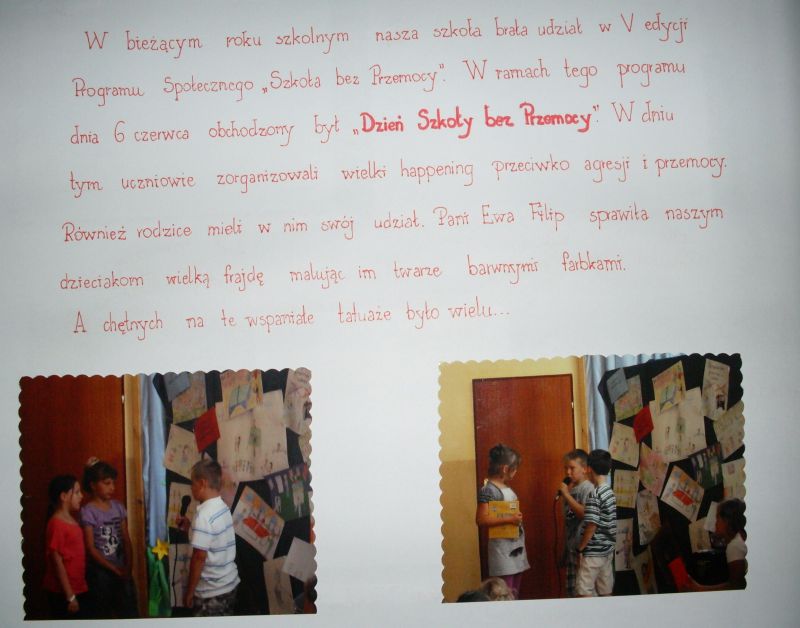 W bieżącym roku szkolnym nasza szkoła brała udział w V edycji
Programu Społecznego „Szkoła bez Przemocy". W ramach tego programu
dnia 6 czerwca obchodzony był „Dzień Szkoły bez Przemocy". W dniu
tym uczniowie zorganizowali wielki happening przeciwko agresji i przemocy.
Również rodzice mieli w nim swój udział. Pani Ewa Filip sprawiła naszym
dzieciakom wielką frajdę malując im twarze barwnymi farbkami.
A chętnych na te wspaniałe tatuaże było wielu...